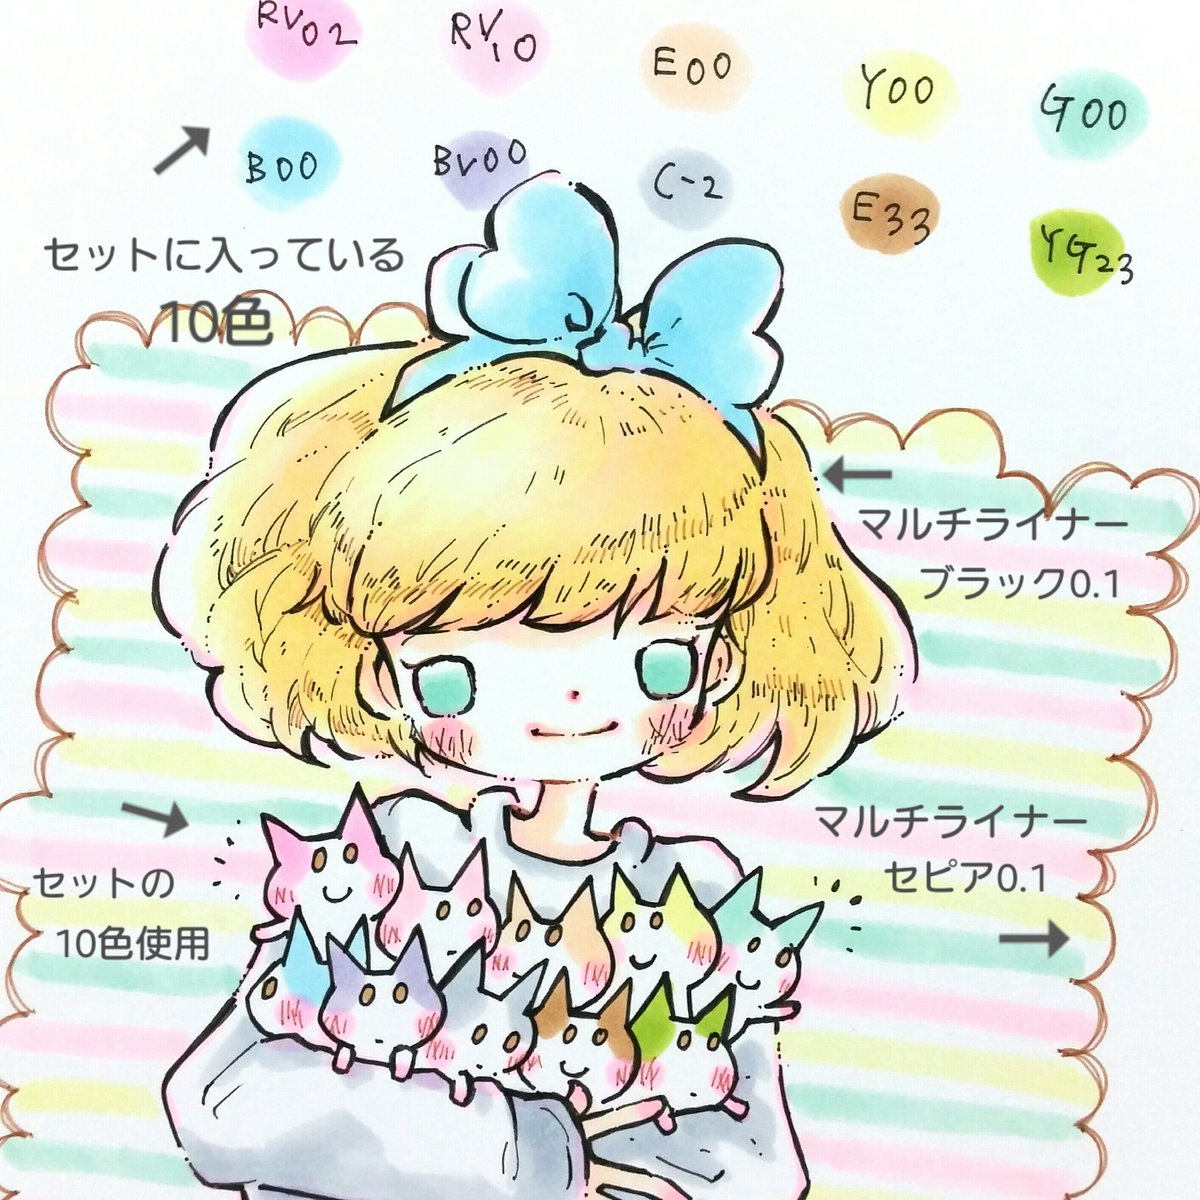 RV02
RV10
E00
Y00
G00
B00
BV00
C-2
E33
YG23
セットに入っている
10色
マルチライナー
ブラック0.1
マルチライナー
セピア0.1
セットの
10色使用